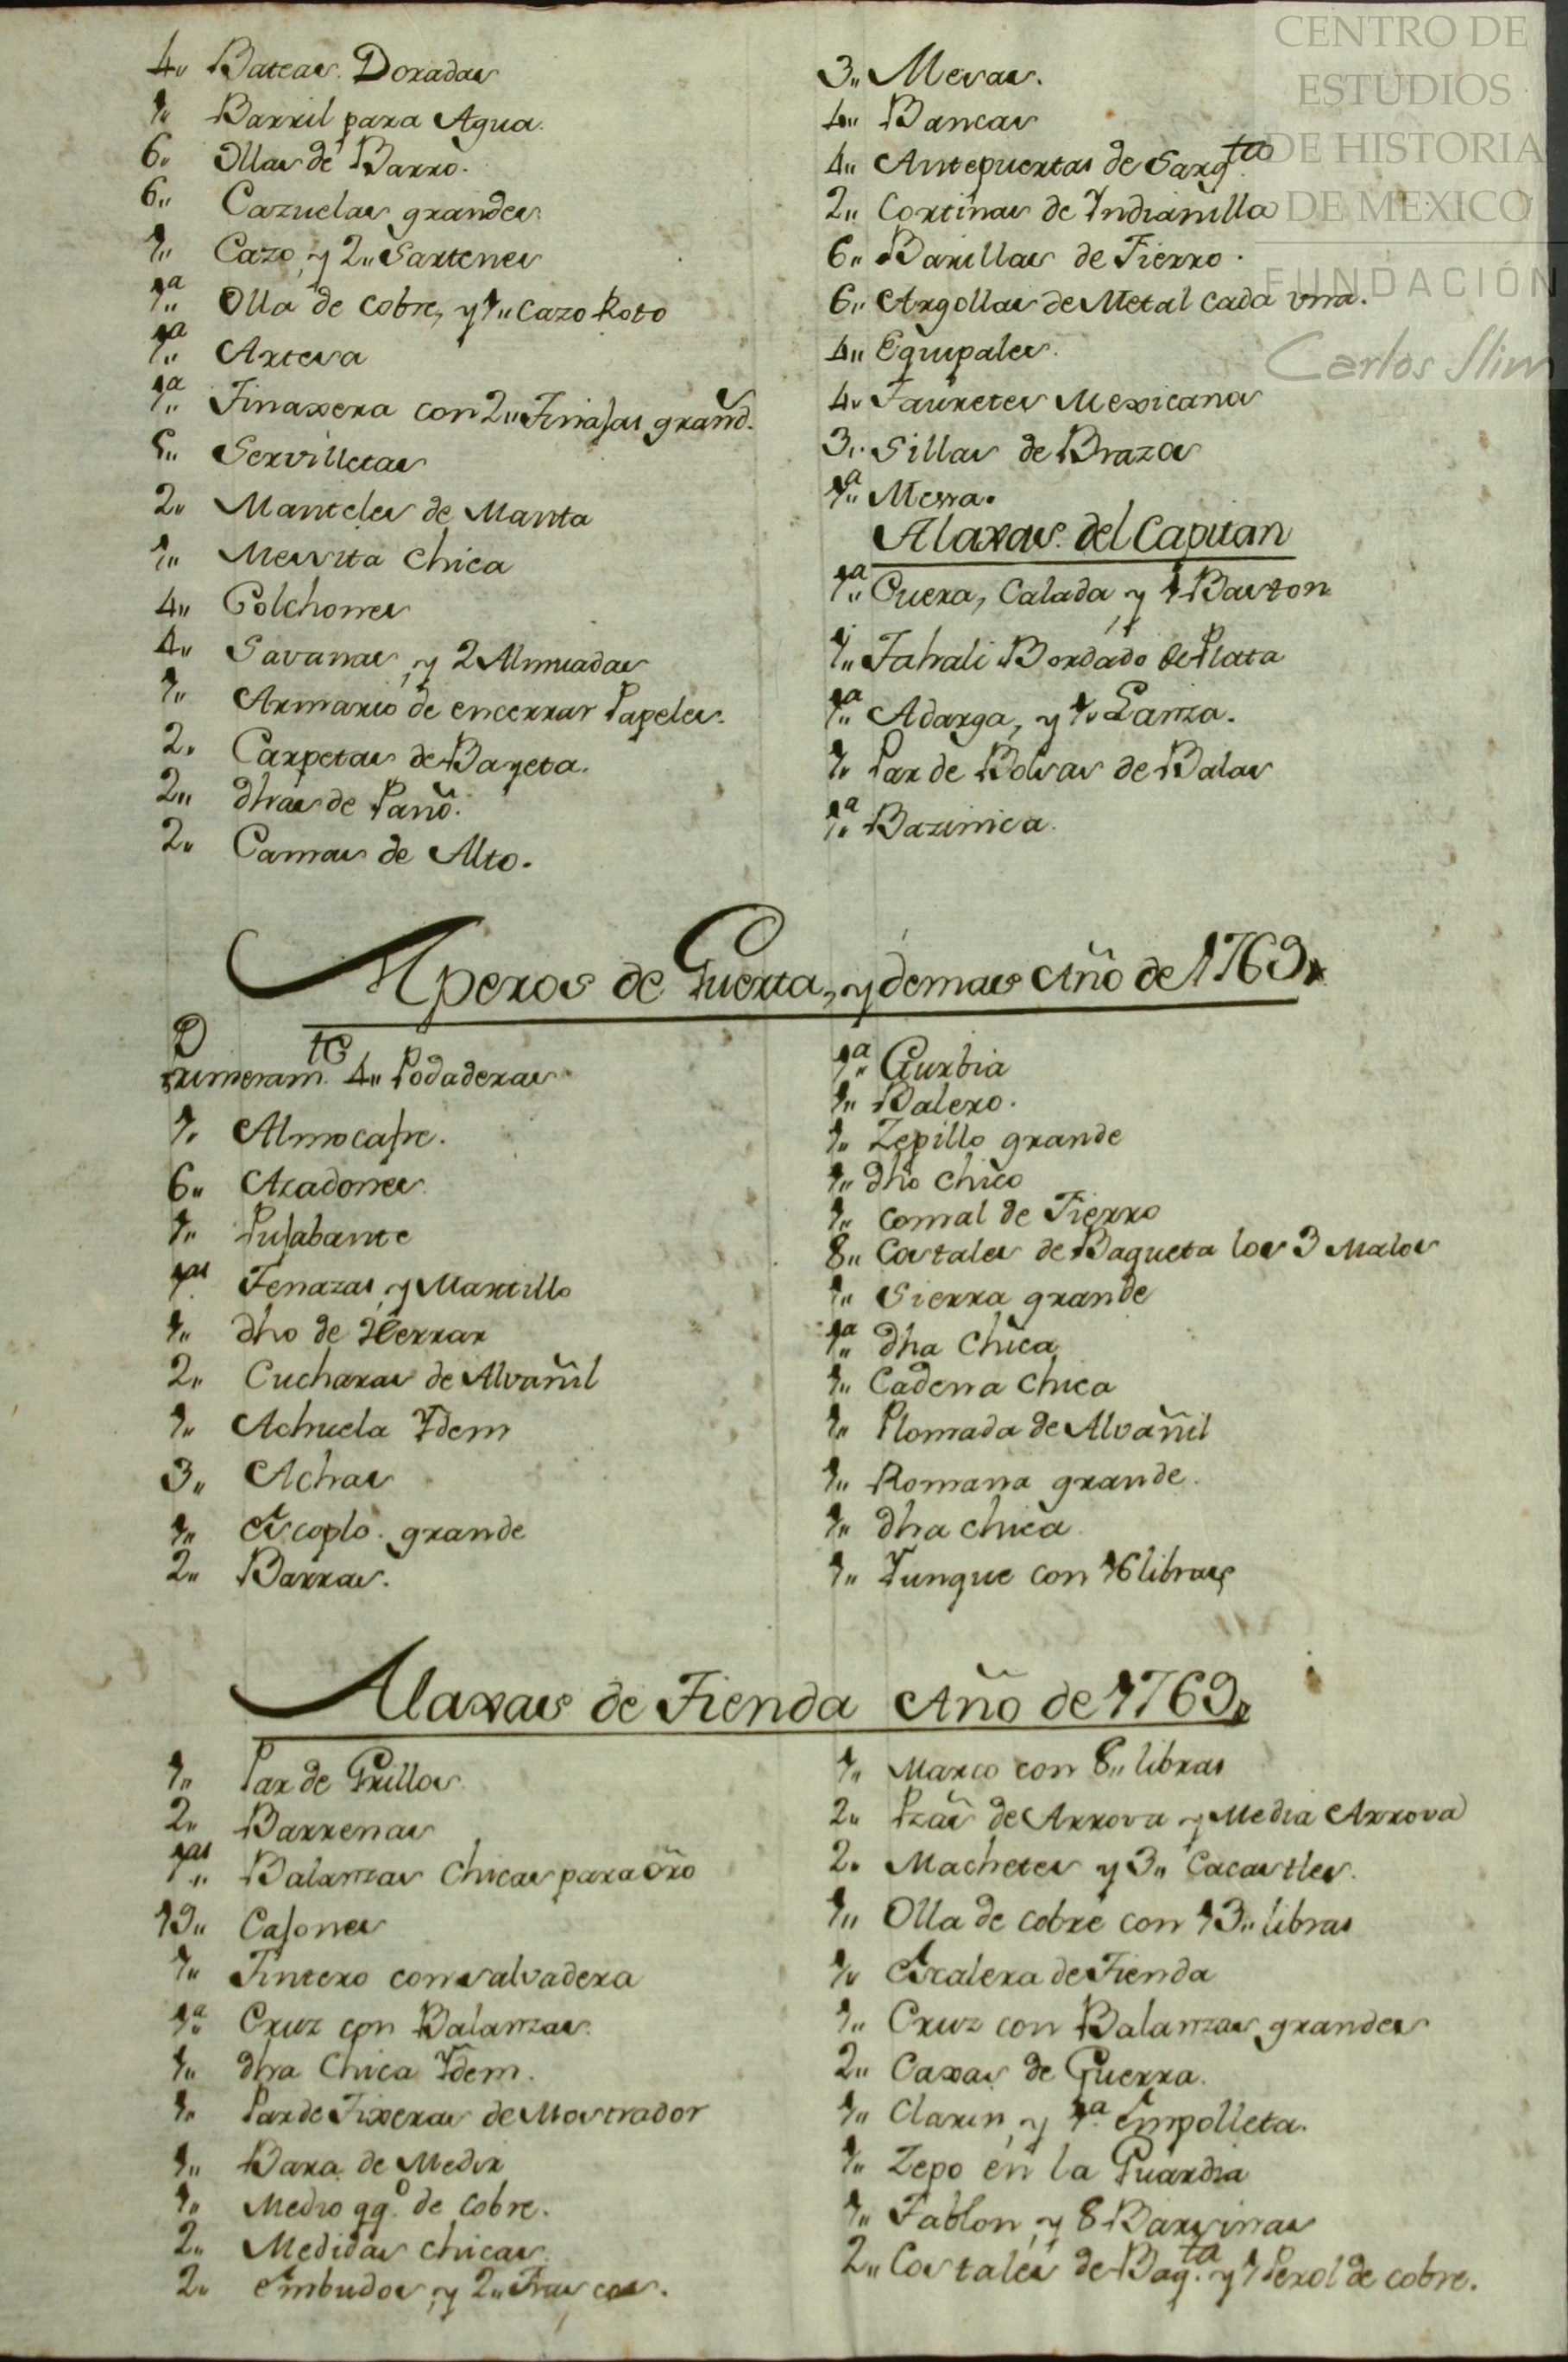 4,, Bateas. Doradas
1,, Barril para Agua.
6,, Ollas de Barro.
6,, Cazuelas grandes.
1,, Cazo, y 2,, Sartenes
1a,, Olla de cobre, y 1,, Cazo Roto
1a,, Artesa
1a,, Tinaxera con 2,, Tinajas grand.
5,, Servilletas
2,, Manteles de Manta
1,, Mesita Chica
4,, Colchones
4,, Savanas, y 2 Almuadas
1,, Armario de encerrar Papeles.
2,, Carpetas de Bayeta.
2,, dhas de Paño.
2,, Camas de Alto.
3,, Mesas.
4,, Bancas
4,, Antepuertas de Sarg.ta
2,, Cortinas de Yndianilla
6,, Barillas de Fierro.
6,, Argollas de Metal cada vna.
4,, Equipales.
4,, Tauretes Mexicanos
3,, Sillas de Brazos
1a,, Messa.
Alaxas. del Capitan
1a,, Cuera, Calada y 1 Baston
1,, Tahali Bordado de Plata
1a,, Adarga, y 1,, Lanza.
1,, Par de Bolsas de Balas
1a,, Bazinica.
Aperos de Guerta, y demas Año de 1769,,
Primeram.te 4,, Podaderas
1,, Almocafre.
6,, Azadones
1,, Pujabante
1as. Tenazas, y Martillo
1,, dho de Herrar
2,, Cucharas de Alvañil
1,, Achuela Ydem
3,, Achas
1,, Escoplo. grande
2,, Barras.
1a,, Gurbia
1,, Balero.
1,, Zepillo grande
1,, dho chico
1,, Comal de Fierro
8,, Costales de Baqueta los 3 Malos
1,, Sierra grande
1a,, dha Chica
1,, Cadena Chica
1,, Plomada de Alvañil
1,, Romana grande.
1,, dha chica.
1,, Yunque con 16 libras
Alaxas de Tienda Año de 1769,,
1,, Par de Grillos
2,, Barrenas
1as,, Balanzas Chicas para oro
19,, Cajones
1,, Tintero con salvadera
1a,, Cruz con Balanzas.
1,, dha Chica Ydem.
1,, Par de Tixeras de Mostrador
1,, Bara de Medir
1,, Medio qq.o de Cobre.
2,, Medidas chicas.
2,, Embudos, y 2,, Frascos.
1,, Marco con 8,, libras
2,, Pzas de Arrova y Media Arrova
2,, Machetes y 3,, Cacastles.
1,, Olla de cobre con 13,, libras
1,, Escalera de Tienda
1,, Cruz con Balanzas grandes
2,, Caxas de Guerra.
1,, Clarin, y 1a. Empolleta.
1,, Zepo en la Guardia
1,, Tablon, y 8 Barsinas
2,, Costales de Baq.ta y 1 Perol de cobre.
CENTRO DE
ESTUDIOS
DE HISTORIA
DE MEXICO
FUNDACIÓN
Carlos Slim